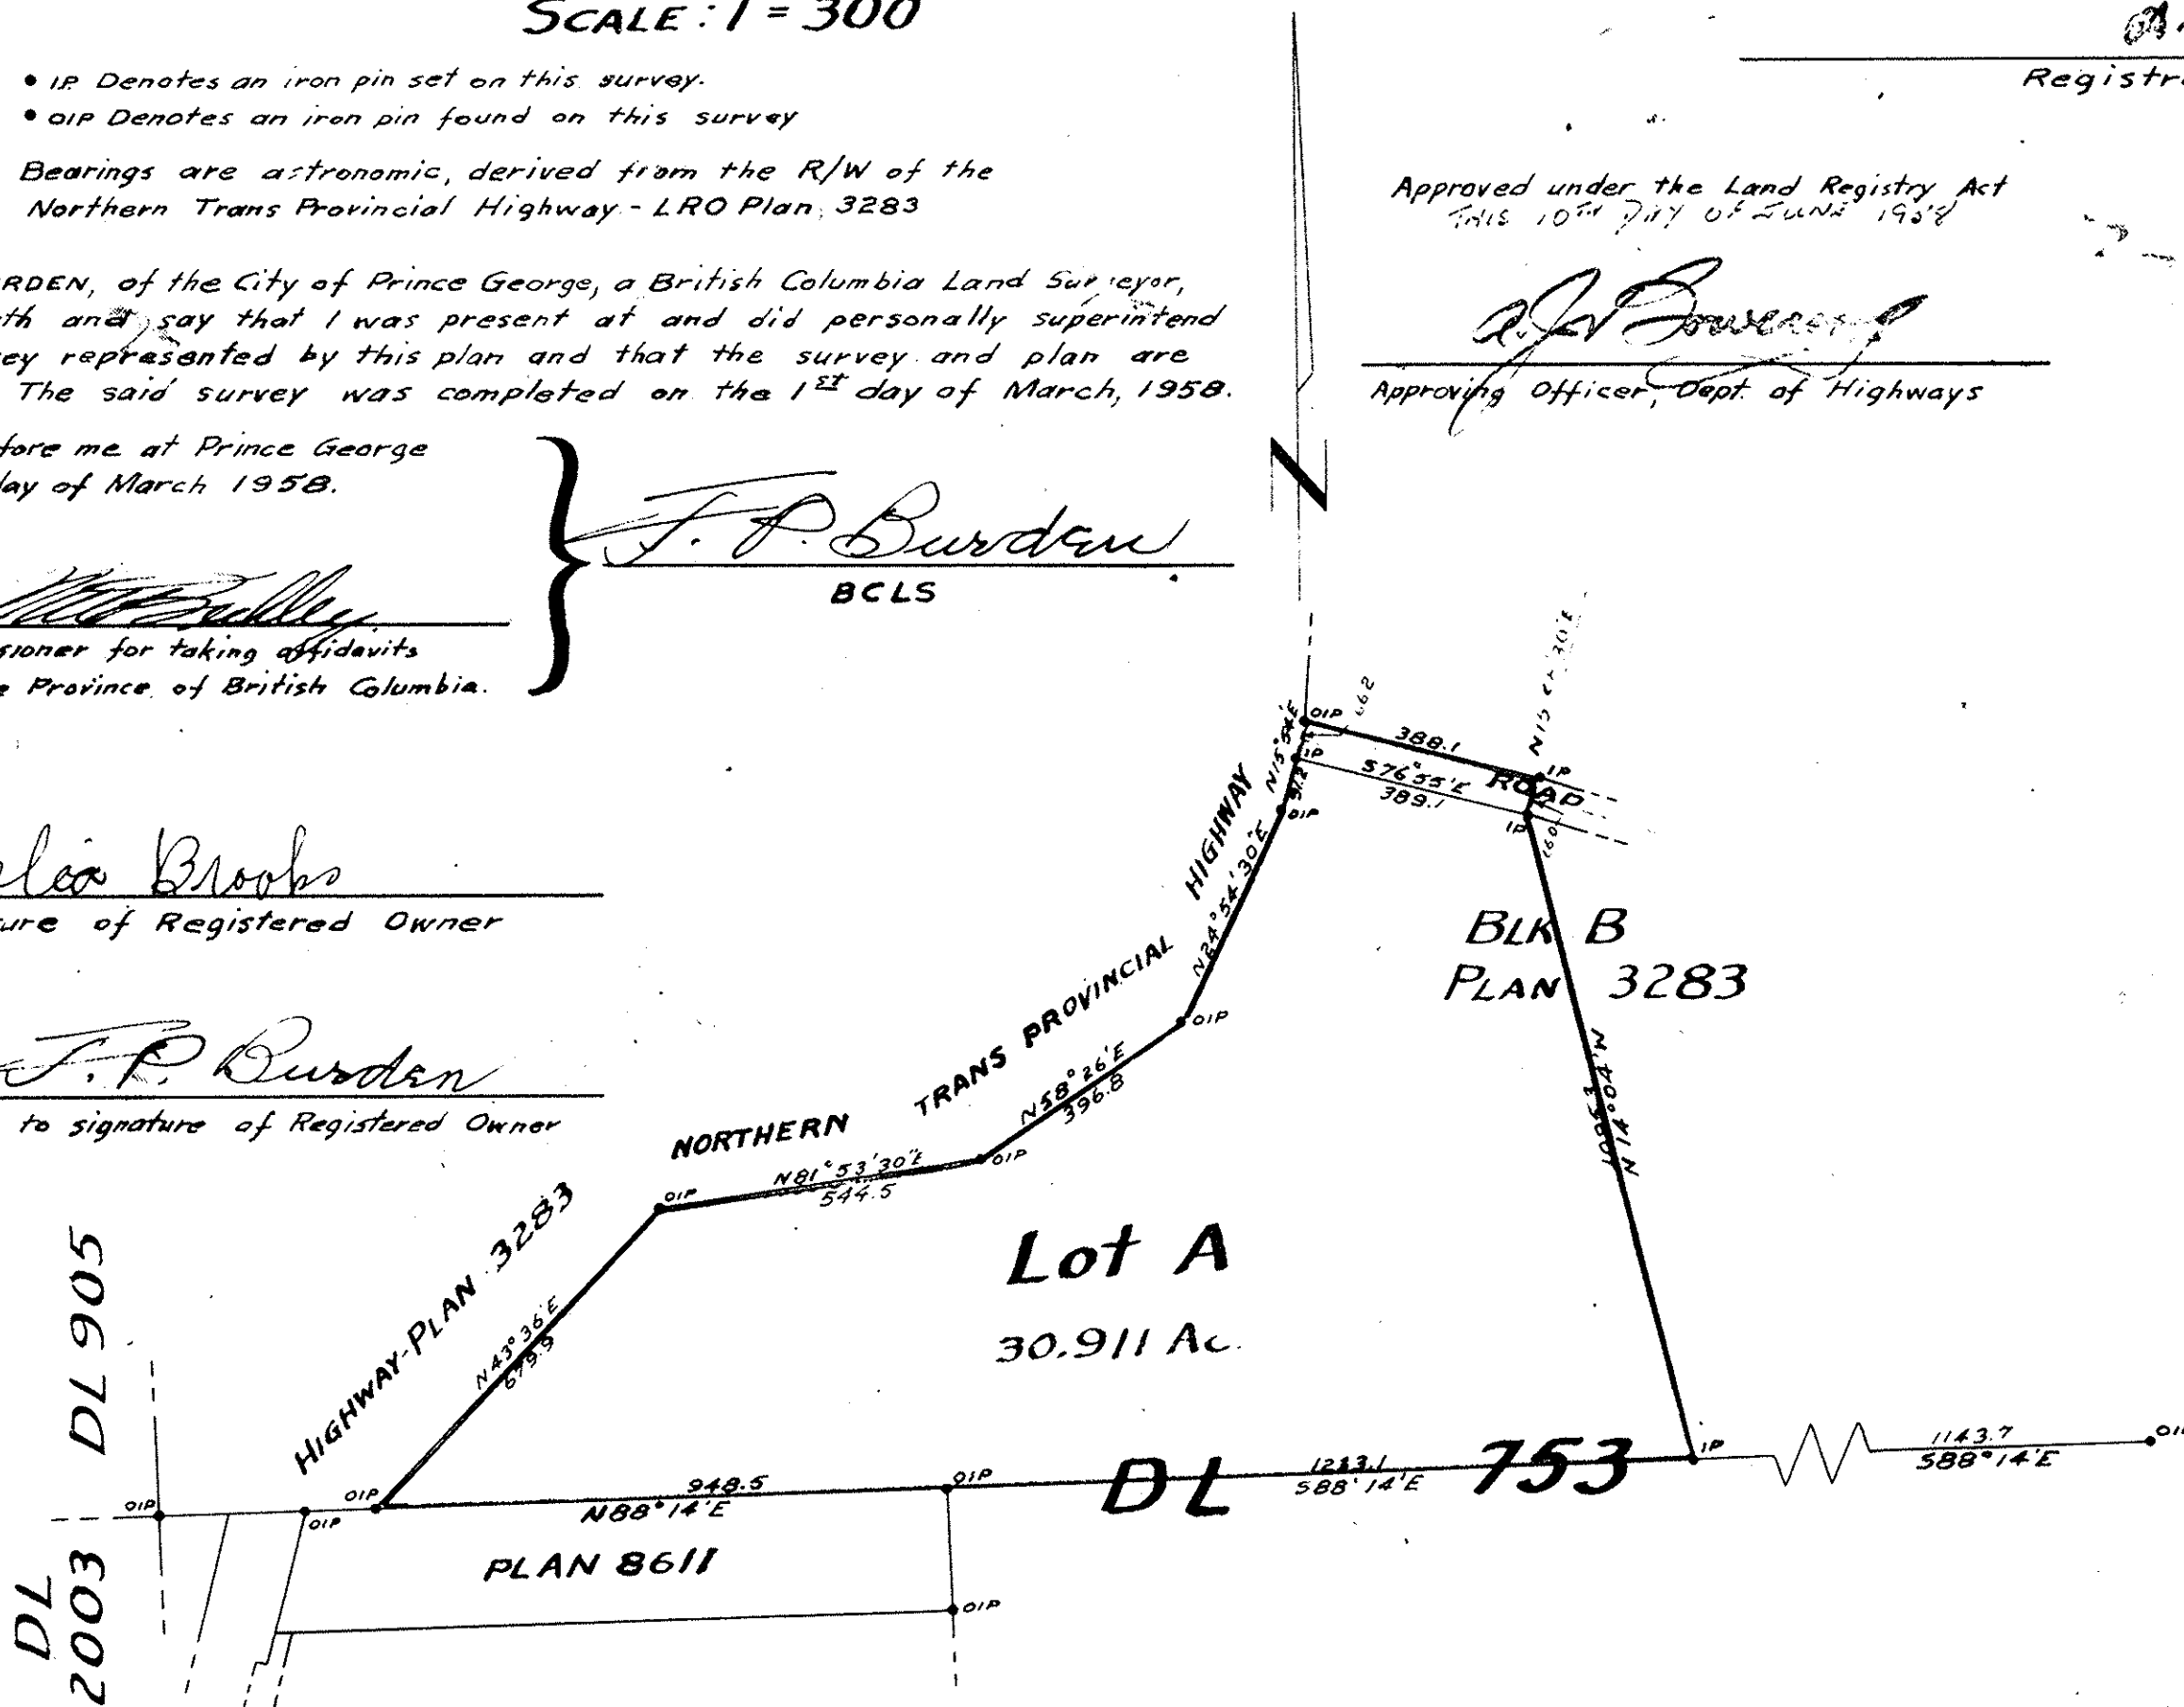 SCALE: 1 = 300
• IP. Denotes an iron pin set on this survey.
• OIP Denotes an iron pin found on this survey
Bearings are astronomic, derived from the R/W of the
Northern Trans Provincial Highway - LRO Plan, 3283
RDEN, of the City of Prince George, a British Columbia Land Surveyor,
th and say that I was present at and did personally superintend
ey represented by this plan and that the survey and plan are
The said survey was completed on the 1st day of March, 1958.
fore me at Prince George
day of March 1958.
F. P. Burden
BCLS
sioner for taking affidavits
e Province of British Columbia.
Brooks
ure of Registered Owner
F. P. Burden
to signature of Registered Owner
Registr
Approved under the Land Registry Act
THIS 10TH DAY OF JUNE 1958
Approving Officer, Dept. of Highways
N
OIP
388.1
IP
N15°54'E
IP
S76°55'E
389.1
ROAD
91.2
OIP
IP
HIGHWAY
N24°54'30"E
OIP
BLK B
PLAN 3283
TRANS PROVINCIAL
N58°26'E
396.8
N14°04'W
NORTHERN
OIP
N81°53'30"E
544.5
OIP
HIGHWAY-PLAN 3283
N43°36'E
679.9
Lot A
30.911 Ac.
DL 905
DL 753
OIP
OIP
OIP
948.5
N88°14'E
OIP
1213.1
S88°14'E
IP
1143.7
S88°14'E
PLAN 8611
OIP
DL
2003